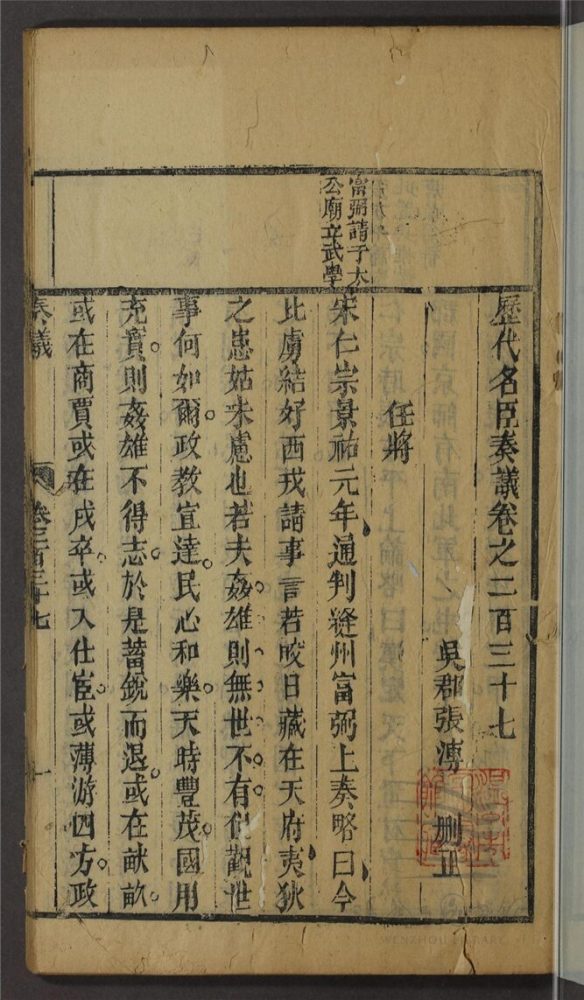 歷代名臣奏議卷之二百三十七
吳郡張溥 刪正
任將
富弼請于太
公廟立武學
宋仁宗景祐元年通判絳州富弼上奏略曰今
北虜結好西戎請事言若皎日藏在天府夷狄
之患姑未慮也若夫姦雄則無世不有但觀世
事何如爾政教宣達民心和樂天時豐茂國用
充實則姦雄不得志於是蓄銳而退或在畎畝
或在商賈或在戍卒或入仕宦或薄游四方政
奏議
卷二百三十七
一
WENZHOU LIBRARY